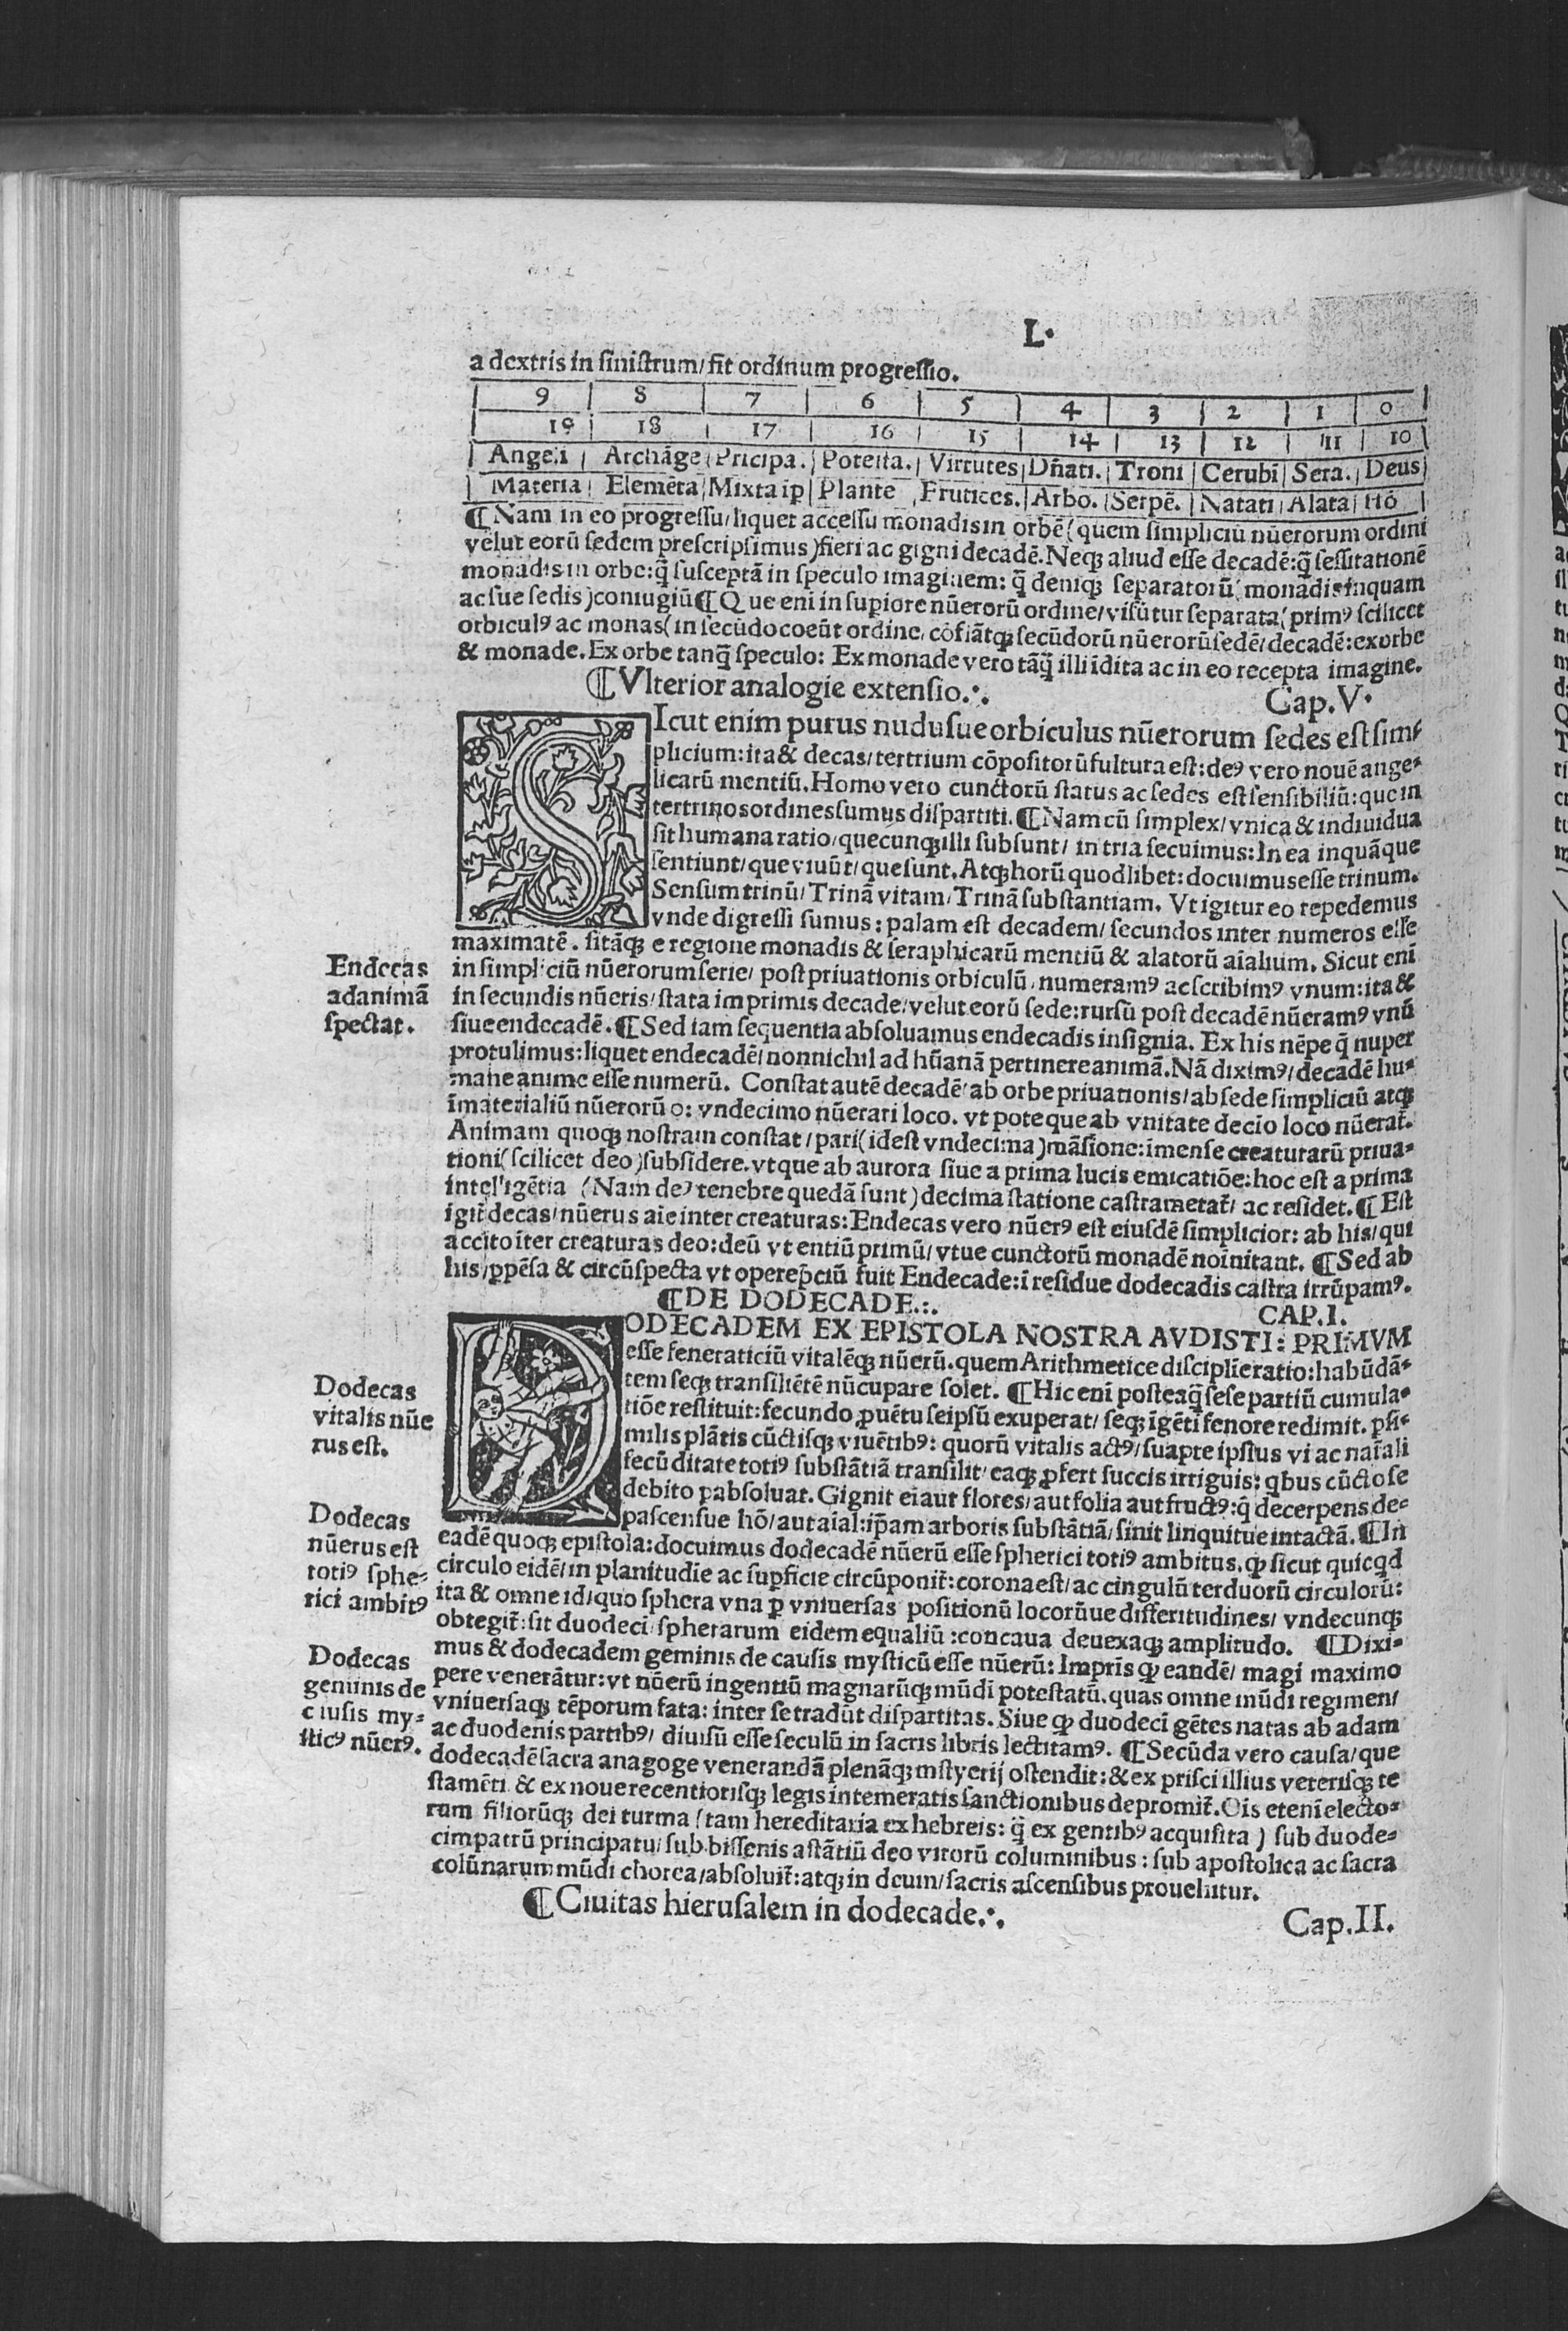 L.
a dextris in sinistrum/ fit ordinum progressio.
| 9 | 8 | 7 | 6 | 5 | 4 | 3 | 2 | 1 | 0 |
| 19 | 18 | 17 | 16 | 15 | 14 | 13 | 12 | 11 | 10 |
| Angeli | Archāge | Pricipa. | Potesta. | Virtutes | Dñati. | Troni | Cerubī | Sera. | Deus |
| Materia | Elemēta | Mixta ip | Plante | Frutices. | Arbo. | Serpē. | Natati | Alata | Hō |
¶ Nam in eo progressu/ liquet accessu monadis in orbē (quem simpliciū nūerorum ordini
velut eorū sedem prescripsimus) fieri ac gigni decadē. Neqꝫ aliud esse decadē: q̄ sessitationē
monadis in orbe: q̄ susceptā in speculo imaginem: q̄ deniqꝫ separatorū (monadis inquam
ac sue sedis) coniugiū ¶ Que eni in supiore nūerorū ordine/ visūtur separata (primꝰ scilicet
orbiculꝰ ac monas (in secūdo coeūt ordine, cōflātqꝫ secūdorū nūerorū sedē/ decadē: ex orbe
& monade. Ex orbe tanq̄ speculo: Ex monade vero tāq̄ illi īdita ac in eo recepta imagine.
¶ Vlterior analogie extensio.·. Cap. V.
SIcut enim purus nudusue orbiculus nūerorum sedes est sim⸗
plicium: ita & decas/ tertrium cōpositorū fultura est: deꝰ vero nouē ange⸗
licarū mentiū. Homo vero cunctorū status ac sedes est sensibiliū: que in
tertrinos ordines sumus dispartiti. ¶ Nam cū simplex/ vnica & indiuidua
sit humana ratio/ quecunqꝫ illi subsunt/ in tria secuimus: In ea inquā que
sentiunt/ que viuūt/ que sunt. Atqꝫ horū quodlibet: docuimus esse trinum.
Sensum trinū/ Trinā vitam/ Trinā substantiam. Vt igitur eo repedemus
vnde digressi sumus: palam est decadem/ secundos inter numeros esse
maximatē. sitāqꝫ e regione monadis & seraphicarū mentiū & alatorū aīalium. Sicut enī
Endecas
ad animā
spectat.
in simpliciū nūerorum serie/ post priuationis orbiculū, numeramꝰ ac scribimꝰ vnum: ita &
in secundis nūeris/ stata imprimis decade/ velut eorū sede: rursū post decadē nūeramꝰ vnū
siue endecadē. ¶ Sed iam sequentia absoluamus endecadis insignia. Ex his nēpe q̄ nuper
protulimus: liquet endecadē/ nonnichil ad hūanā pertinere animā. Nā diximꝰ/ decadē hu⸗
mane anime esse numerū. Constat autē decadē/ ab orbe priuationis/ ab sede simpliciū atqꝫ
īmaterialiū nūerorū 0: vndecimo nūerari loco. vt pote que ab vnitate decīo loco nūerat̄.
Animam quoqꝫ nostram constat/ pari (id est vndecima) māsione: īmense creaturarū priua⸗
tioni (scilicet deo) subsidere. vtque ab aurora siue a prima lucis emicatiōe: hoc est a prima
intelligētia (Nam deꝰ tenebre quedā sunt) decima statione castrametat̄/ ac residet. ¶ Est
igit̄ decas/ nūerus aīe inter creaturas: Endecas vero nūerꝰ est eiusdē simplicior: ab his/ qui
accito īter creaturas deo: deū vt entiū primū/ vtue cunctorū monadē noīnitant. ¶ Sed ab
his/ ꝑpēsa & circūspecta vt operep̄ciū fuit Endecade: ī residue dodecadis castra irrūpamꝰ.
¶ DE DODECADE.:. CAP. I.
DODECADEM EX EPISTOLA NOSTRA AVDISTI: PRIMVM
esse feneraticiū vitalēqꝫ nūerū. quem Arithmetice discipline ratio: habūdā⸗
Dodecas
vitalis nūe
rus est.
tem seqꝫ transiliētē nūcupare solet. ¶ Hic enī posteaq̄ sese partiū cumula⸗
tiōe restituit: fecundo ꝓuētu seipsū exuperat/ seqꝫ īgēti fenore redimit. ꝑsi⸗
milis plātis cūctisqꝫ viuētibꝰ: quorū vitalis actꝰ/ suapte ipsius vi ac nat̄ali
fecūditate totiꝰ substātiā transilit/ eaqꝫ ꝓfert succis irriguis: qbus cūcto se
debito ꝑabsoluat. Gignit ei aut flores/ aut folia aut fructꝰ: q̄ decerpens de⸗
pascensue hō/ aut aīal: ip̄am arboris substātiā/ sinit linquitue intactā. ¶ In
Dodecas
nūerus est
totiꝰ sphe⸗
rici ambitꝰ
eadē quoqꝫ epistola: docuimus dodecadē nūerū esse spherici totiꝰ ambitus. qꝫ sicut quicqd
circulo eidē/ in planitudie ac supficie circūponit̄: corona est/ ac cingulū ter duorū circulorū:
ita & omne id/ quo sphera vna ꝑ vniuersas positionū locorūue differitudines/ vndecunqꝫ
obtegit̄: sit duodeci spherarum eidem equaliū: concaua deuexaqꝫ amplitudo. ¶ Dixi⸗
Dodecas
geminis de
causis my⸗
sticꝰ nūerꝰ.
mus & dodecadem geminis de causis mysticū esse nūerū: Impr̄is qꝫ eandē/ magi maximo
pere venerātur: vt nūerū ingentiū magnarūqꝫ mūdi potestatū. quas omne mūdi regimen/
vniuersaqꝫ tēporum fata: inter se tradūt dispartitas. Siue qꝫ duodecī gētes natas ab adam
ac duodenis partibꝰ/ diuisū esse seculū in sacris libris lectitamꝰ. ¶ Secūda vero causa/ que
dodecadē sacra anagoge venerandā plenāqꝫ mstyerij ostendit: & ex prisci illius veterisqꝫ te
stamēti & ex noue recentiorisqꝫ legis intemeratis sanctionibus depromit̄. Ois etenī electo⸗
rum filiorūqꝫ dei turma (tam hereditaria ex hebreis: q̄ ex gentibꝰ acquisita) sub duode⸗
cim patrū principatu/ sub bissenis astātiū deo virorū columinibus: sub apostolica ac sacra
colūnarum mūdi chorea/ absoluit̄: atqꝫ in deum/ sacris ascensibus prouehitur.
¶ Ciuitas hierusalem in dodecade.·. Cap. II.